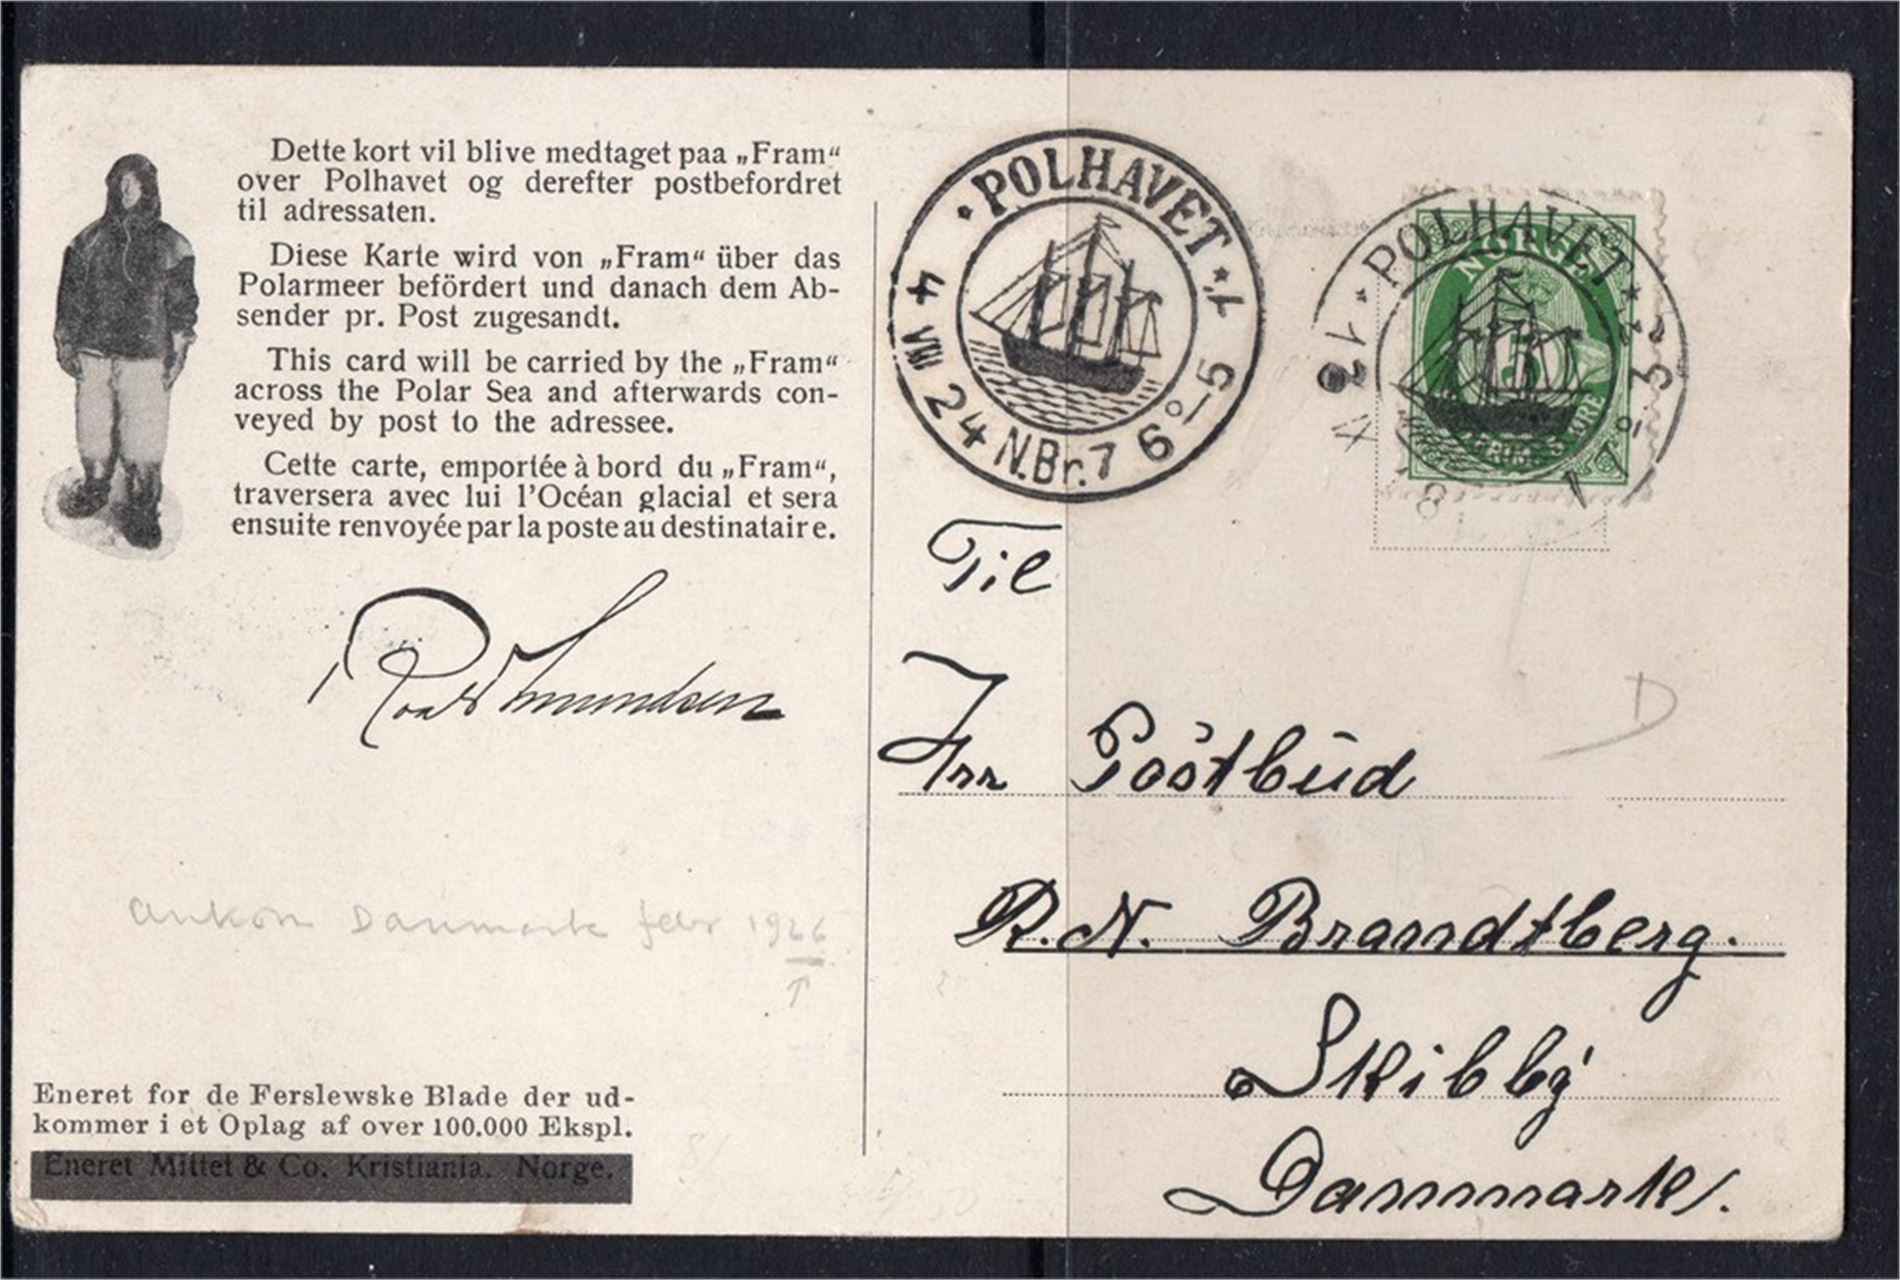 Dette kort vil blive medtaget paa „Fram“
over Polhavet og derefter postbefordret
til adressaten.
Diese Karte wird von „Fram“ über das
Polarmeer befördert und danach dem Ab-
sender pr. Post zugesandt.
This card will be carried by the „Fram“
across the Polar Sea and afterwards con-
veyed by post to the adressee.
Cette carte, emportée à bord du „Fram“,
traversera avec lui l'Océan glacial et sera
ensuite renvoyée par la poste au destinataire.
Roald Amundsen
ankom Danmark febr 1926
Eneret for de Ferslewske Blade der ud-
kommer i et Oplag af over 100.000 Ekspl.
Eneret Mittet & Co. Kristiania. Norge.
POLHAVET
4 VIII 24 N.Br. 76°-5
POLHAVET
NORGE
5
ØRE
Til
Hrr Postbud
R.N. Brandtberg.
Skibby
Danmark.
D